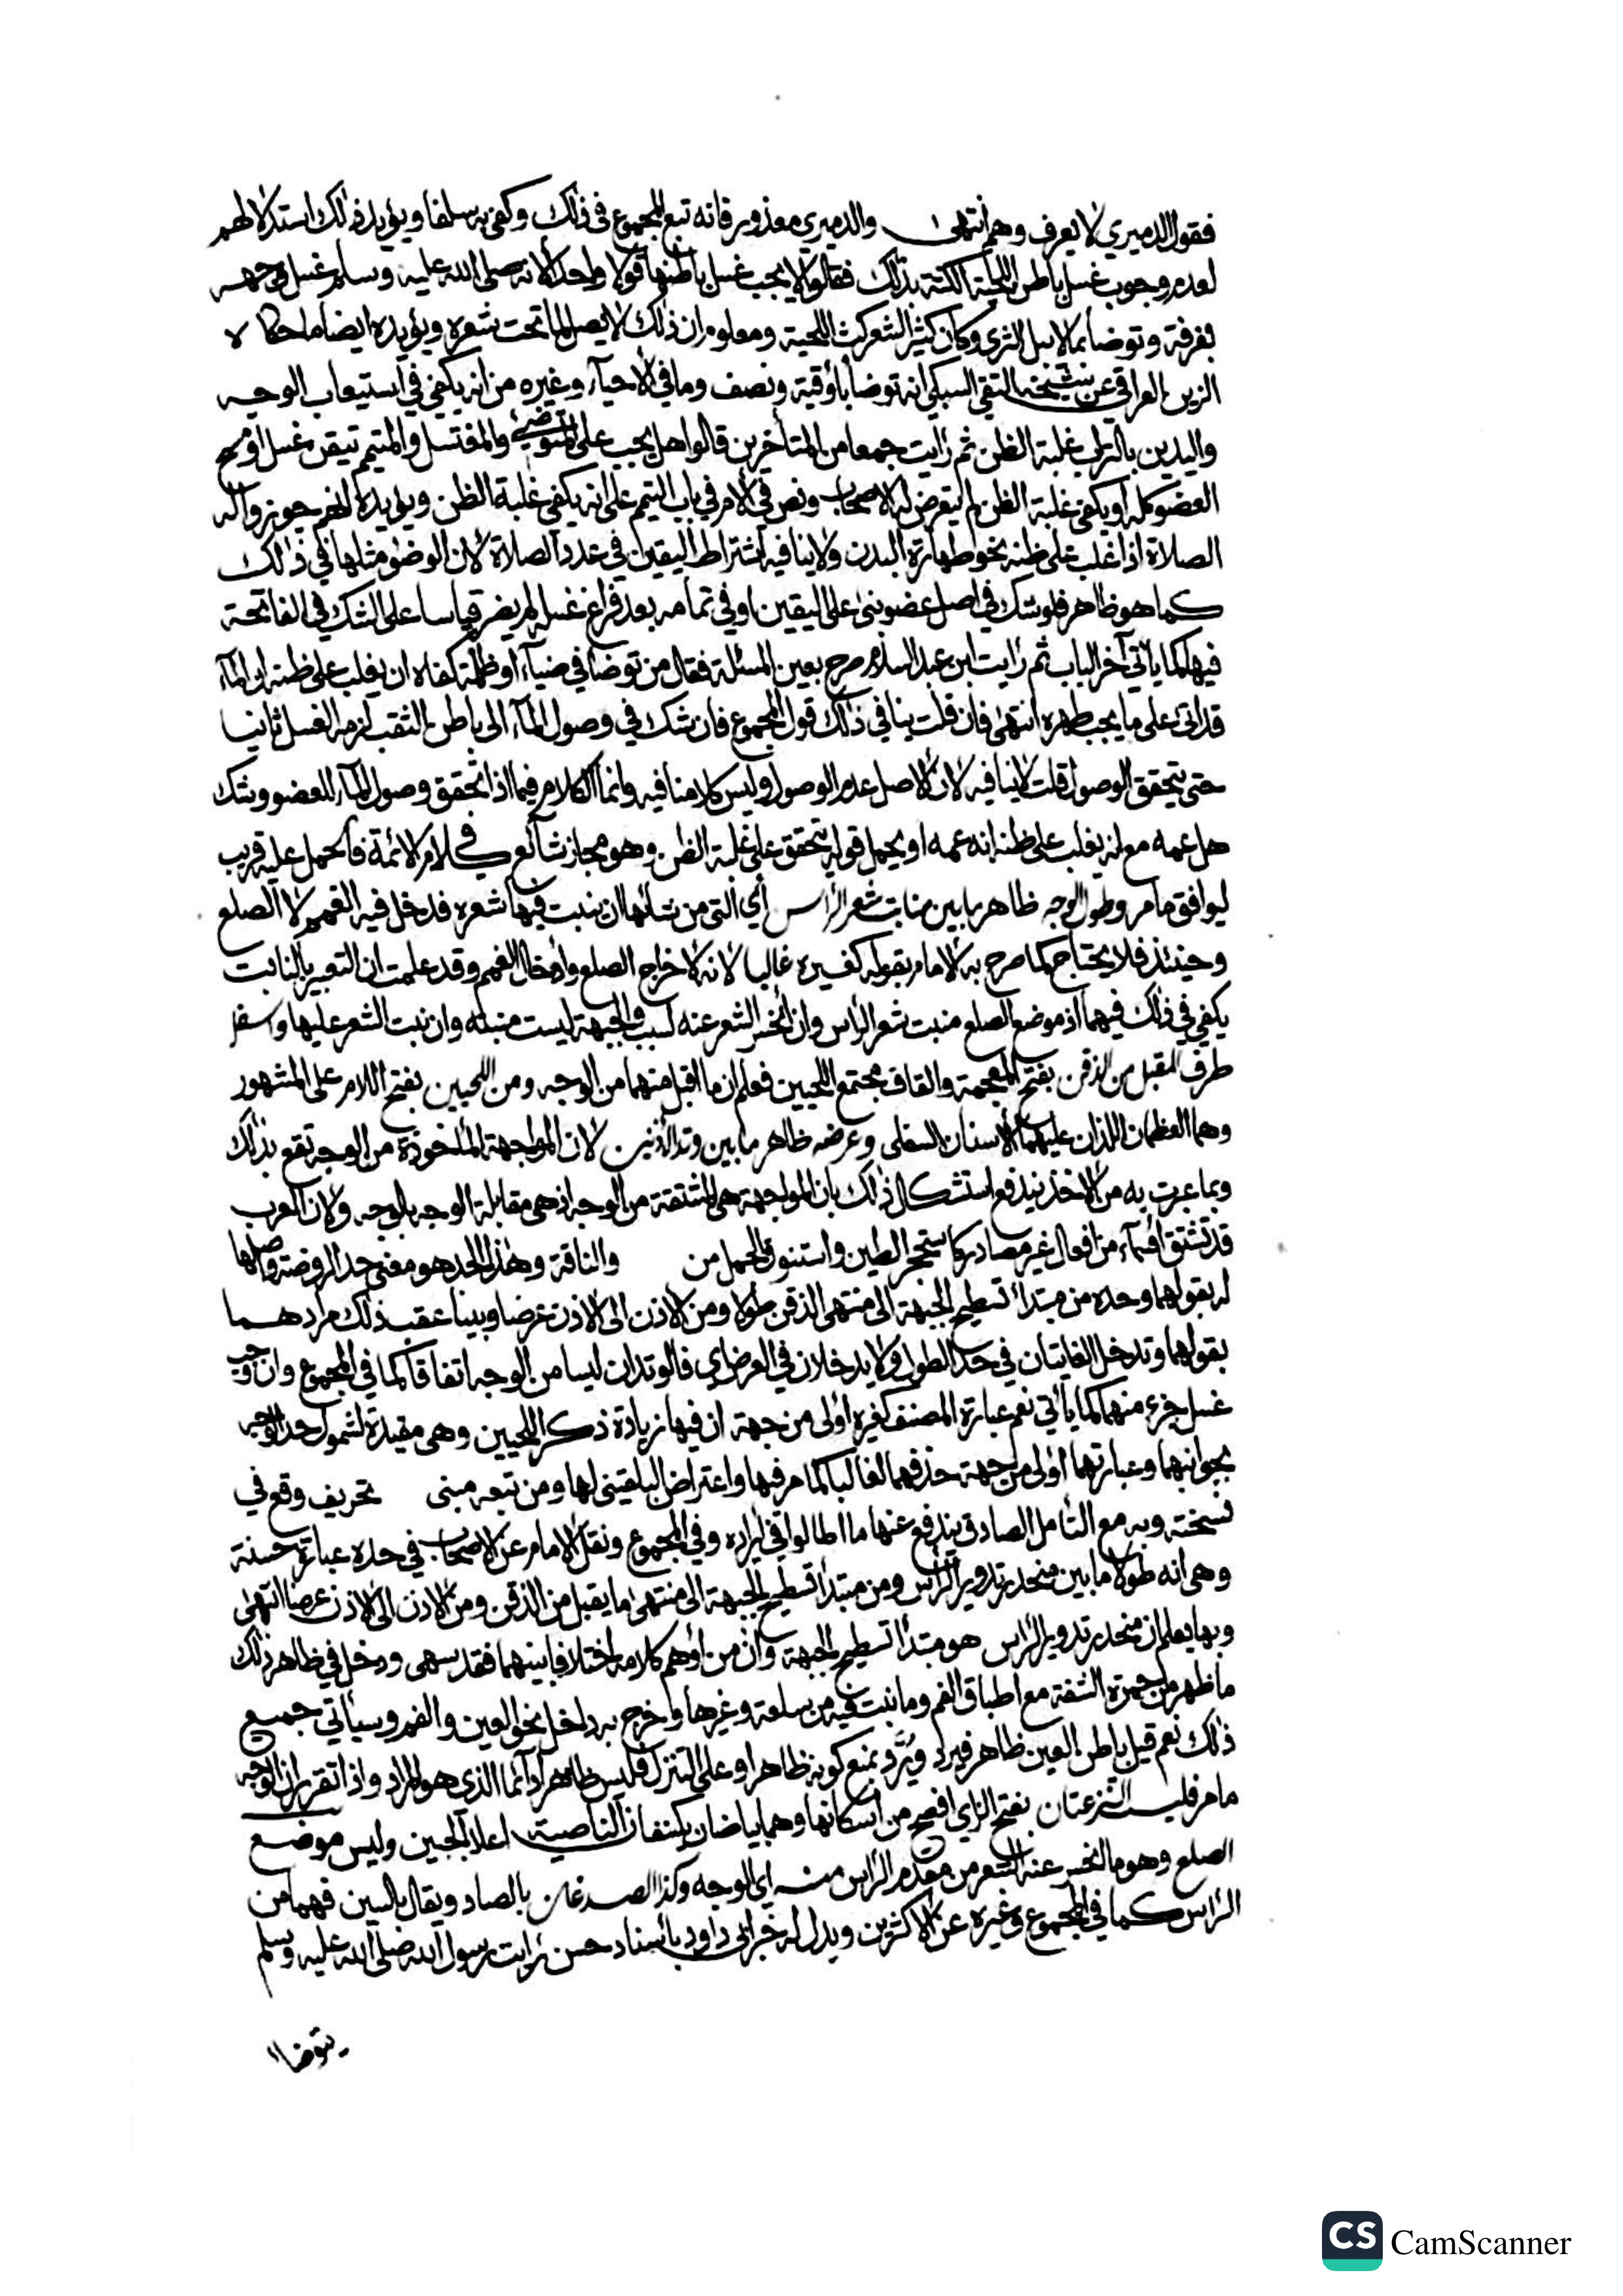 فقول الدميري لا يعرف وهم انتهى والدميري معذور فانه تبع المجموع في ذلك وكفى به سلفا ويؤيد ذلك استدلالهم
لعدم وجوب غسل باطن اللحية الكثة بذلك فقالوا لا يجب غسل باطنها قولا واحدا لانه صلى الله عليه وسلم غسل وجهه
بغرفة وتوضا بما لا يبل الثرى وكان كثير الشعر كث اللحية ومعلوم ان ذلك لا يصل لما تحت شعره ويؤيده ايضا ما حكاه
الزين العراقي عن شيخه التقي السبكي انه توضا باوقية ونصف وما في الاحياء وغيره من انه يكفي في استيعاب الوجه
واليدين بالتراب غلبة الظن ثم رايت جمعا من المتأخرين قالوا هل يجب على المتوضئ والمغتسل والمتيمم تيقن غسل او مسح
العضو كله او يكفي غلبة الظن لم يتعرض له الاصحاب ونص في الام في باب التيمم على انه يكفي غلبة الظن ويؤيده انهم جوزوا له
الصلاة اذا غلب على ظنه نحو طهارة البدن ولا ينافيه اشتراط اليقين في عدد الصلاة لان الوضوء مثلها في ذلك
كما هو ظاهر فلو شك في اصل عضو بنى على اليقين او في تمامه بعد فراغ غسله لم يضر قياسا على الشك في الفاتحة
فيهما كما ياتي آخر الباب ثم رايت ابن عبد السلام صرح بعين المسئلة فقال من توضا في ضياء او ظلمة كفاه ان يغلب على ظنه ان الماء
قد اتى على ما يجب طهره انتهى فان قلت ينافي ذلك قول المجموع فان شك في وصول الماء الى باطن الثقب لزمه الغسل ثانيا
حتى يتحقق الوصول قلت لا ينافيه لان الاصل عدم الوصول وليس كلامنا فيه وانما الكلام فيما اذا تحقق وصول الماء للعضو وشك
هل عمه مع انه يغلب على ظنه انه عمه او يحمل قوله يتحقق على غلبة الظن وهو مجاز شائع في كلام الائمة فالحمل عليه قريب
ليوافق ما مر وطول الوجه ظاهر ما بين منابت شعر الراس أي التي من شانها ان ينبت فيها شعره فدخل فيه الغمم لا الصلع
وحينئذ فلا يحتاج كما صرح به الامام بقوله كغيره غالبا لانه لاخراج الصلع وادخال الغمم وقد علمت ان التعبير بالمنابت
يكفي في ذلك فيهما اذ موضع الصلع منبت شعر الراس وان انحسر الشعر عنه لسبب والجبهة ليست منبته وان نبت الشعر عليها واسفل
طرف المقبل من الذقن بفتح المعجمة والقاف مجتمع اللحيين فعلم ان ما اقبل منهما من الوجه ومن اللحيين بفتح اللام على المشهور
وهما العظمان اللذان عليهما الاسنان السفلى وعرضه ظاهر ما بين وتد الاذنين لان المواجهة المأخوذة من الوجه تقع بذلك
وبما عبرت به من الاخذ يندفع استشكال ذلك بان المواجهة هي المشتقة من الوجه اذ هي مقابلة الوجه بالوجه ولان العرب
قد تشتق افعالا من افعال غير مصادر كاستحجر الطين واستنوق الجمل من والناقة وهذا الحد هو معنى حد الروضة واصلها
له بقولهما وحده من مبتدأ تسطيح الجبهة الى منتهى الذقن طولا ومن الاذن الى الاذن عرضا وبينا عقب ذلك مرادهما
بقولهما وتدخل الغايتان في حد الطول ولا يدخلان في العرض اي فالوتدان ليسا من الوجه اتفاقا كما في المجموع وان وجب
غسل جزء منهما كما يأتي نعم عبارة المصنف كغيره اولى من جهة ان فيها زيادة ذكر اللحيين وهي مفيدة لشمول حد الوجه
بجوانبها وعبارتهما اولى من جهة حذفهما لغالبا كما مر فيها واعتراض البلقيني لها ومن تبعه مبنى تحريف وقع في
نسخته وبه مع التامل الصادق يندفع عنها ما اطالوا في ايراده وفي المجموع ونقل الامام عن الاصحاب في حده عبارة حسنة
وهي انه طولا ما بين منحدر تدوير الراس ومن مبتدأ تسطيح الجبهة الى منتهى ما يقبل من الذقن ومن الاذن الى الاذن عرضا انتهى
وبها يعلم ان منحدر تدوير الراس هو مبتدأ تسطيح الجبهة وان من اوهم كلامه اختلافا بينهما فقد سهى ودخل في ظاهر ذلك
ما ظهر من حمرة الشفة مع اطباق الفم وما نبت فيه من سلعة وغيرها واخرج به داخل نحو العين والفم وسيأتي جميع
ذلك نعم قيل باطن العين ظاهر فيرد ويُرَد بمنع كونه ظاهرا وعلى التنزل فليس ظاهرا دائما الذي هو المراد واذا تقرر ان الوجه
ما مر فليست النزعتان بفتح الزاي افصح من اسكانها وهما بياضان يكتنفان الناصية اعلا الجبين وليس موضع
الصلع وهو ما انحسر عنه الشعر من مقدم الراس منه اي الوجه وكذا الصدغان بالصاد ويقال بالسين فهما من
الراس كما في المجموع وغيره عن الاكثرين ويدل له خبر ابي داود باسناد حسن رايت رسول الله صلى الله عليه وسلم
يتوضا
CS CamScanner